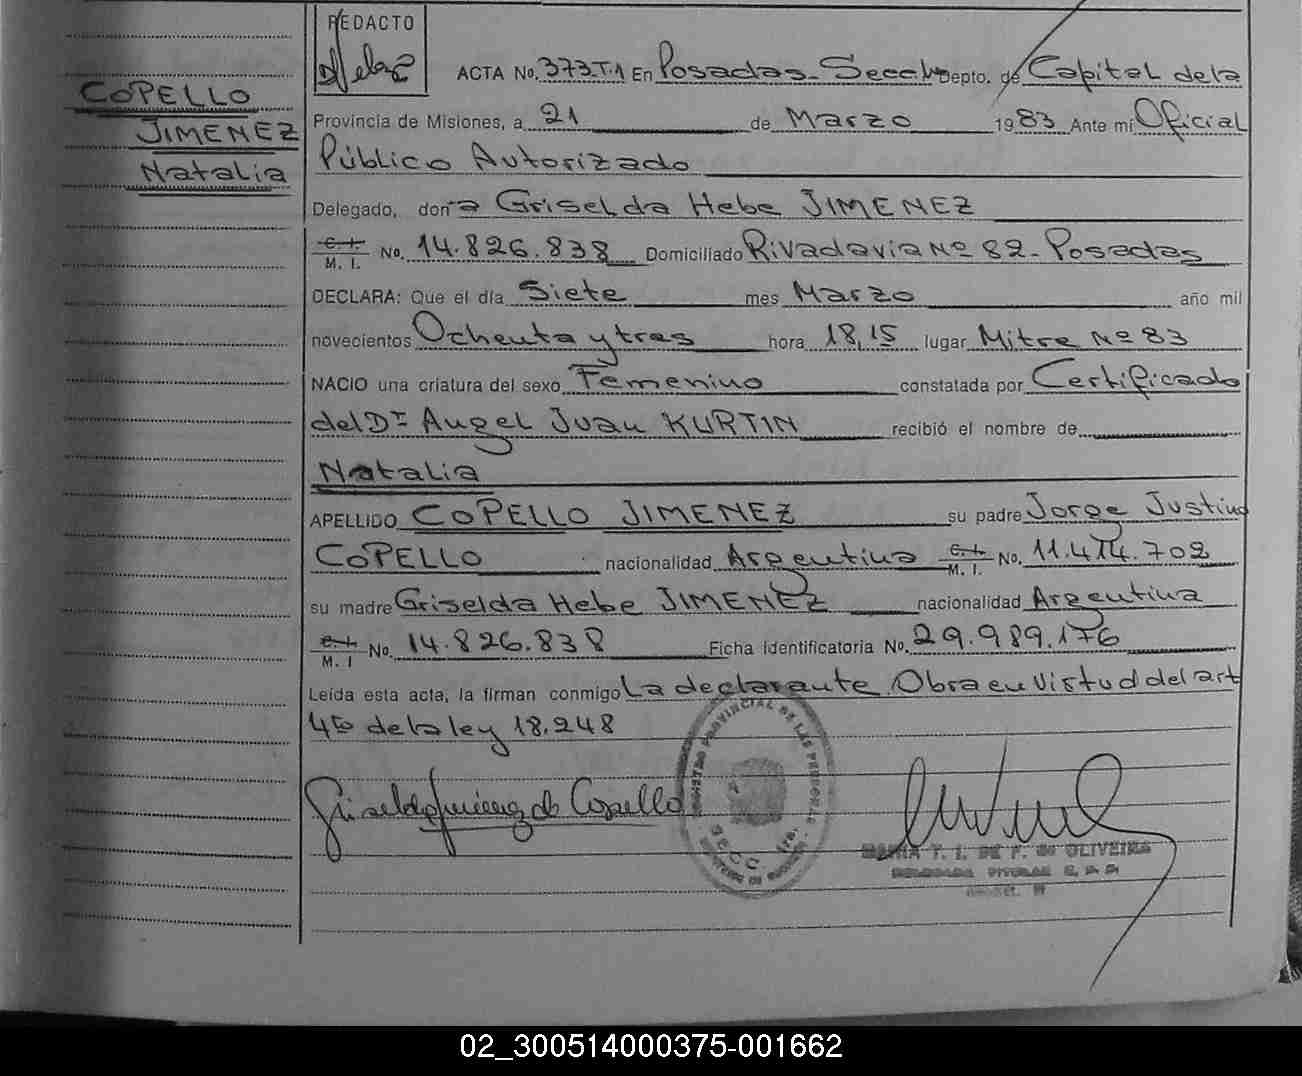 COPELLO
JIMENEZ
Natalia
REDACTO
ACTA No. 373-T.1 En Posadas- Depto. de Capital de la
Provincia de Misiones, a 21 de Marzo 1983 Ante mí Oficial
Público Autorizado
Delegado, don a Griselda Hebe JIMENEZ
C. I. M. I. No. 14.826.838 Domiciliado Rivadavia Nº 82- Posadas
DECLARA: Que el día Siete mes Marzo año mil
novecientos Ochenta y tres hora 18,15 lugar Mitre Nº 83
NACIO una criatura del sexo Femenino constatada por Certificado
del Dr Angel Juan KURTIN recibió el nombre de
Natalia
APELLIDO COPELLO JIMENEZ su padre Jorge Justino
COPELLO nacionalidad Argentina C. I. M. I. No. 11.414.702
su madre Griselda Hebe JIMENEZ nacionalidad Argentina
C. I. M. I No. 14.826.838 Ficha Identificatoria No. 29.989.176
Leída esta acta, la firman conmigo La declarante. Obra en Virtud del art
4to de la ley 18.248
Griselda Jimenez de Copello
REGISTRO PROVINCIAL DE LAS PERSONAS
SECC. 1ra.
MARIA T. I. DE F. de OLIVEIRA
DELEGADA TITULAR
02_300514000375-001662